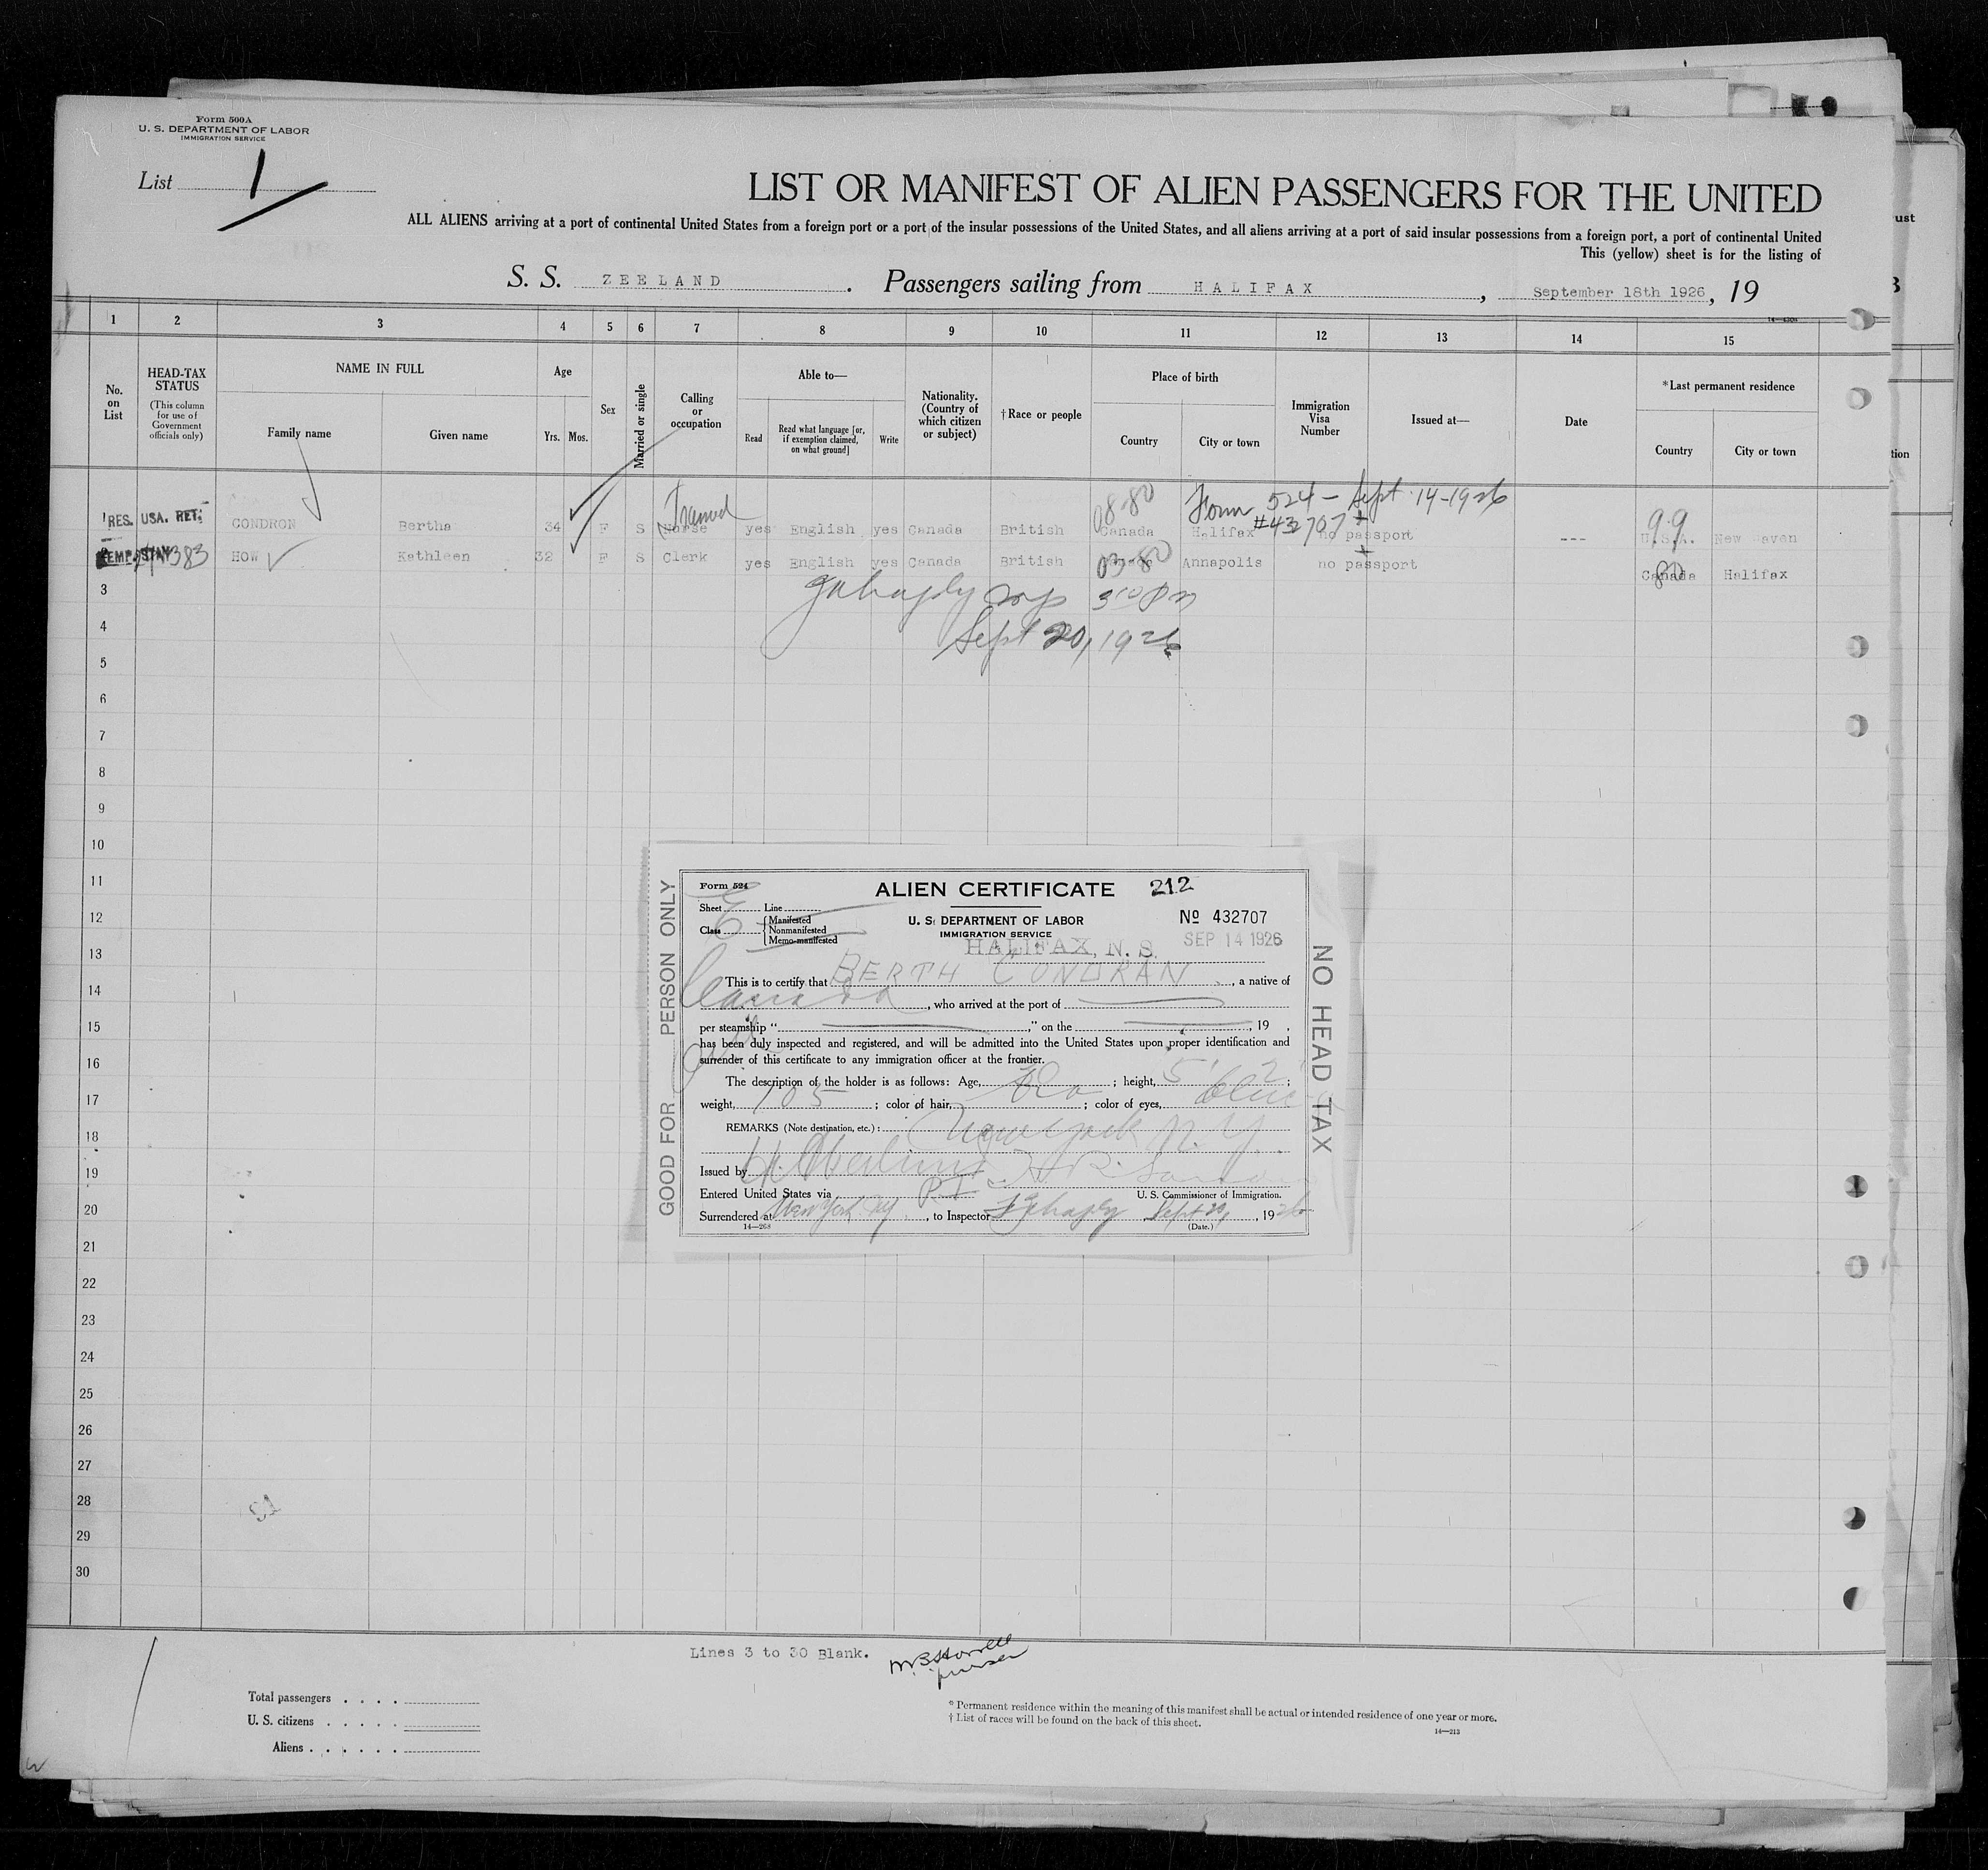 Form 500A
U. S. DEPARTMENT OF LABOR
IMMIGRATION SERVICE
List 1
LIST OR MANIFEST OF ALIEN PASSENGERS FOR THE UNITED
ALL ALIENS arriving at a port of continental United States from a foreign port or a port of the insular possessions of the United States, and all aliens arriving at a port of said insular possessions from a foreign port, a port of continental United
This (yellow) sheet is for the listing of
S. S. ZEELAND. Passengers sailing from HALIFAX, September 18th 1926, 19
1 2 3 4 5 6 7 8 9 10 11 12 13 14 15
No. on List
HEAD-TAX STATUS
(This column for use of Government officials only)
NAME IN FULL
Family name
Given name
Age
Yrs. Mos.
Sex
Married or single
Calling or occupation
Able to—
Read
Read what language [or, if exemption claimed, on what ground]
Write
Nationality. (Country of which citizen or subject)
†Race or people
Place of birth
Country
City or town
Immigration Visa Number
Issued at—
Date
*Last permanent residence
Country
City or town
Trained 08-80 Form 524 - Sept. 14-1926
#432707
1 RES. USA. RET. CONDRON Bertha 34 F S Nurse yes English yes Canada British Canada Halifax no passport --- 99 U.S.A. New Haven
TEMP. STAY 383 HOW Kathleen 32 F S Clerk yes English yes Canada British 03-80 Annapolis no passport 80 Canada Halifax
3 3 10 PM
4 Sept 20, 1926
5
6
7
8
9
10
11
12
13
14
15
16
17
18
19
20
21
22
23
24
25
26
27
28
29
30
GOOD FOR PERSON ONLY
NO HEAD TAX
Form 524
ALIEN CERTIFICATE 212
Sheet Line
Class { Manifested
Nonmanifested
Memo-manifested
U. S. DEPARTMENT OF LABOR
IMMIGRATION SERVICE
No 432707
HALIFAX, N. S. SEP 14 1926
This is to certify that BERTH CONDRAN, a native of
Canada, who arrived at the port of
per steamship " ," on the , 19 ,
has been duly inspected and registered, and will be admitted into the United States upon proper identification and
surrender of this certificate to any immigration officer at the frontier.
The description of the holder is as follows: Age, ; height, 5' 2 ;
weight, 105 ; color of hair, ; color of eyes, blue
REMARKS (Note destination, etc.): New York N. Y.
Issued by
Entered United States via
U. S. Commissioner of Immigration.
Surrendered at New York NY, to Inspector Sept 20, 1926
14—268
(Date.)
Lines 3 to 30 Blank.
purser
Total passengers
U. S. citizens
Aliens
* Permanent residence within the meaning of this manifest shall be actual or intended residence of one year or more.
† List of races will be found on the back of this sheet.
14—213